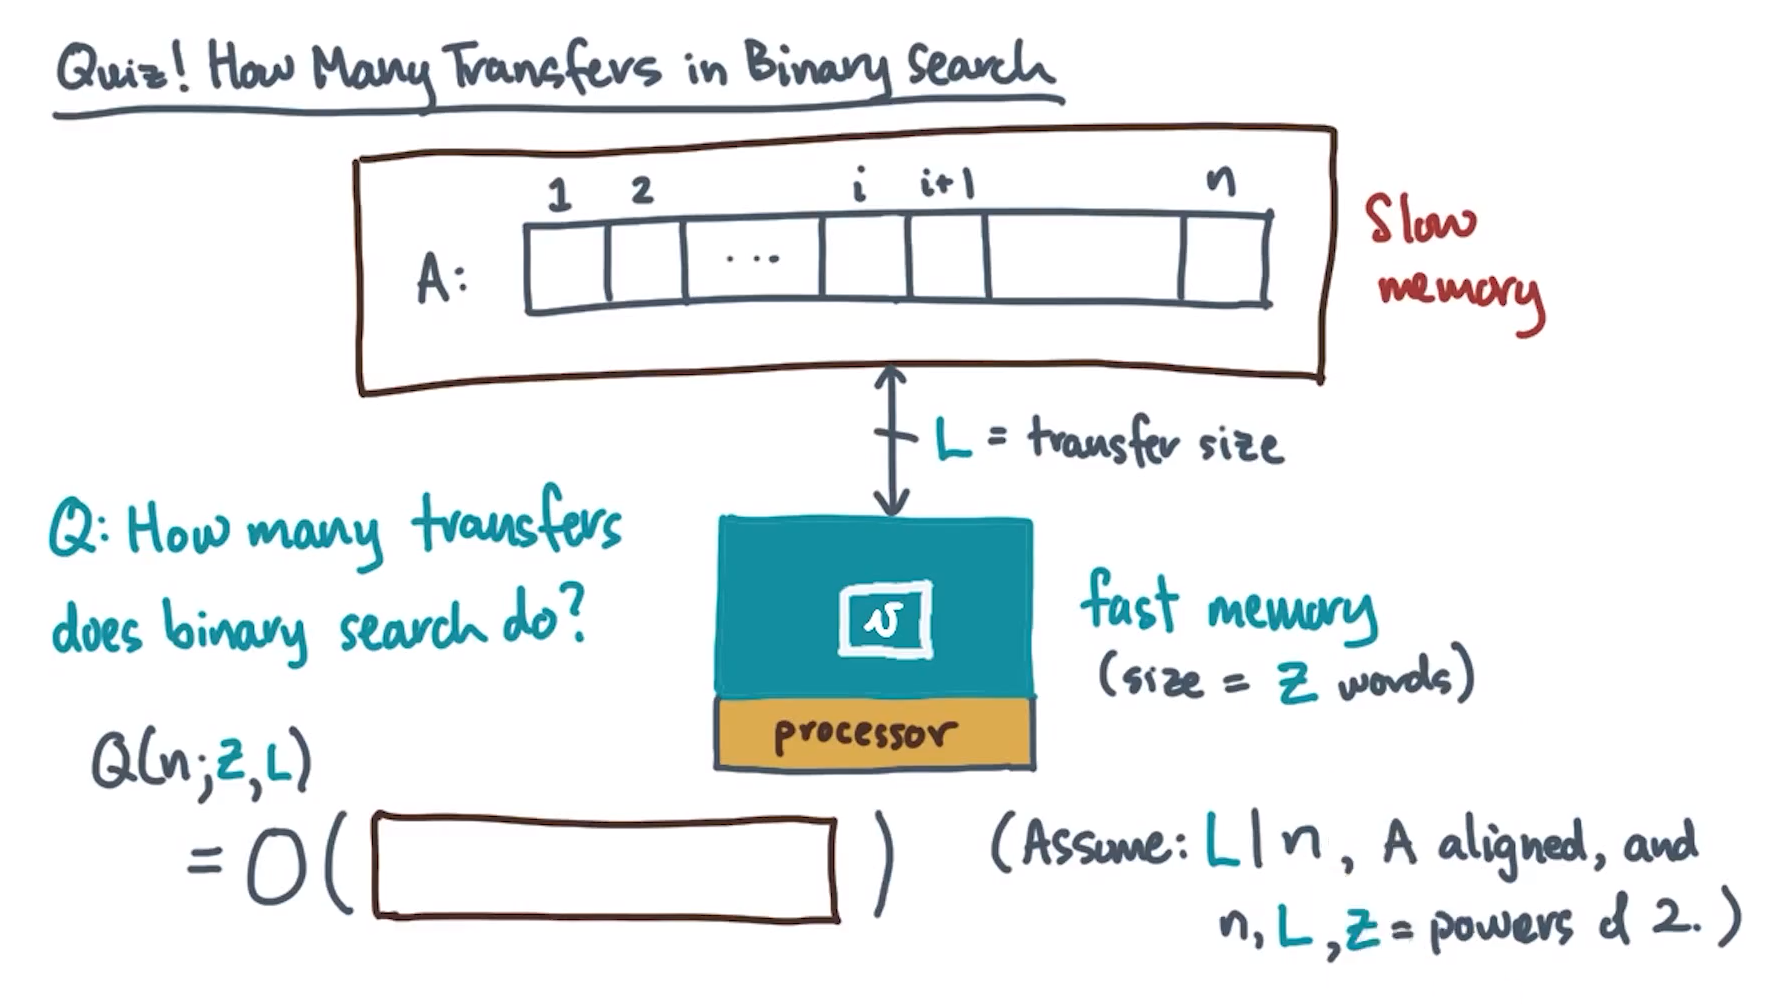 Quiz! How Many Transfers in Binary Search
1 2 i i+1 n
A: ...
Slow
memory
L = transfer size
Q: How many transfers
does binary search do?
v
fast memory
(size = Z words)
processor
Q(n; Z, L)
= O( )
(Assume: L | n, A aligned, and
n, L, Z = powers of 2.)